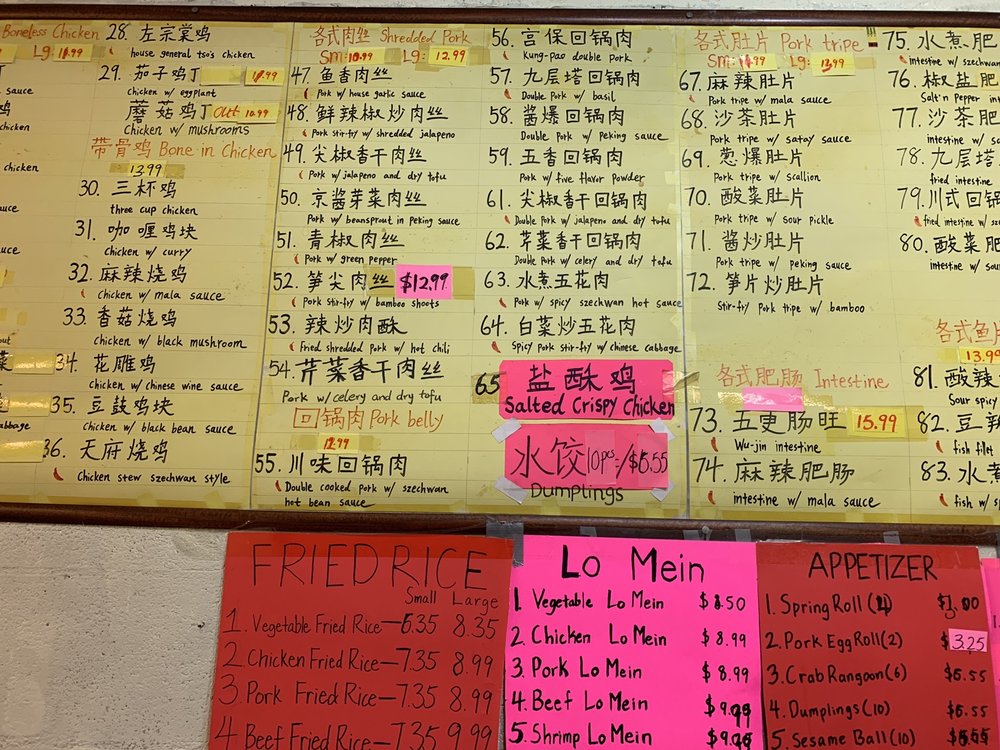 Boneless Chicken
Lg: 11.99
sauce
chicken
chicken
sauce
sauce
cabbage
28. 左宗棠鸡
house general tso's chicken
29. 茄子鸡丁 11.99
Chicken w/ eggplant
蘑菇鸡丁 Out 10.99
Chicken w/ mushrooms
带骨鸡 Bone in Chicken
13.99
30. 三杯鸡
three cup chicken
31. 咖喱鸡块
chicken w/ curry
32. 麻辣烧鸡
chicken w/ mala sauce
33. 香菇烧鸡
chicken w/ black mushroom
34. 花雕鸡
Chicken w/ chinese wine sauce
35. 豆鼓鸡块
chicken w/ black bean sauce
36. 天府烧鸡
Chicken stew szechwan style
各式肉丝 Shredded Pork
Sm: 10.99 Lg: 12.99
47. 鱼香肉丝
Pork w/ house garlic sauce
48. 鲜辣椒炒肉丝
Pork stir-fry w/ shredded jalapeno
49. 尖椒香干肉丝
Pork w/ jalapeno and dry tofu
50. 京酱芽菜肉丝
Pork w/ beansprout in Peking sauce
51. 青椒肉丝
Pork w/ green pepper
52. 笋尖肉丝 $12.99
Pork stir-fry w/ bamboo shoots
53. 辣炒肉酥
Fried shredded Pork w/ hot chili
54. 芹菜香干肉丝
Pork w/ celery and dry tofu
回锅肉 Pork belly
12.99
55. 川味回锅肉
Double cooked pork w/ szechwan
hot bean sauce
56. 宫保回锅肉
Kung-pao double pork
57. 九层塔回锅肉
Double Pork w/ basil
58. 酱爆回锅肉
Double Pork w/ Peking sauce
59. 五香回锅肉
Pork w/ five flavor powder
61. 尖椒香干回锅肉
Double Pork w/ jalapeno and dry tofu
62. 芹菜香干回锅肉
Double Pork w/ celery and dry tofu
63. 水煮五花肉
Pork w/ spicy szechwan hot sauce
64. 白菜炒五花肉
Spicy Pork stir-fry w/ chinese cabbage
65 盐酥鸡
Salted Crispy Chicken
水饺 10pcs/$6.55
Dumplings
各式肚片 Pork tripe
Sm: Lg: 13.99
67. 麻辣肚片
Pork tripe w/ mala sauce
68. 沙茶肚片
Pork tripe w/ satay sauce
69. 葱爆肚片
Pork tripe w/ scallion
70. 酸菜肚片
Pork tripe w/ sour pickle
71. 酱炒肚片
Pork tripe w/ peking sauce
72. 笋片炒肚片
Stir-fry Pork tripe w/ bamboo
各式肥肠 Intestine
73. 五更肠旺 15.99
Wu-jin intestine
74. 麻辣肥肠
intestine w/ mala sauce
75. 水煮肥
intestine w/ szechwan
76. 椒盐肥
Salt'n Pepper in
77. 沙茶肥
intestine w/ s
78. 九层塔
fried intestine
79. 川式回锅
fried intestine w/ sz
80. 酸菜肥
intestine w/ sou
各式鱼片
13.99
81. 酸辣
Sour spicy
82. 豆
fish filet
83. 水煮
fish w/ sp
FRIED RICE
Small Large
1. Vegetable Fried Rice—6.35 8.35
2 Chicken Fried Rice—7.35 8.99
3 Pork Fried Rice—7.35 8.99
4 Beef Fried Rice—7.35 9.99
Lo Mein
1. Vegetable Lo Mein $8.50
2. Chicken Lo Mein $8.99
3. Pork Lo Mein $8.99
4. Beef Lo Mein
5. Shrimp Lo Mein
APPETIZER
1. Spring Roll (4)
2. Pork Egg Roll (2) $3.25
3. Crab Rangoon (6) $6.55
4. Dumplings (10) $6.55
5. Sesame Ball (10)